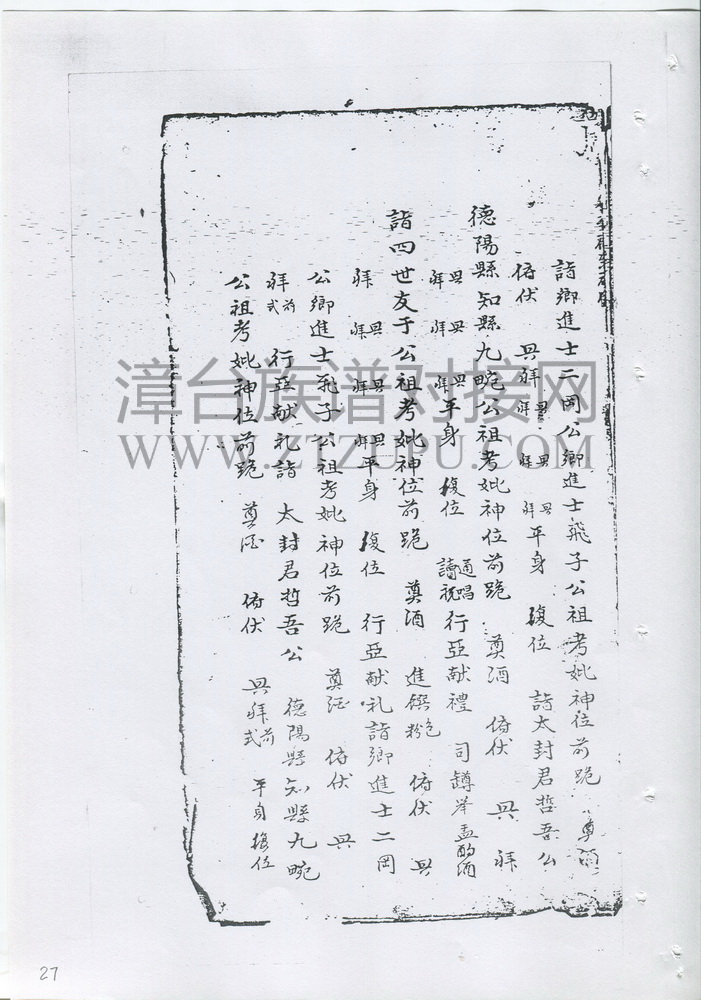 詣鄉進士二岡公鄉進士飛子公祖考妣神位前跪 奠酒
俯伏 興 拜 興 拜 興 拜 興 拜 平身 復位 詣太封君哲吾公
德陽縣知縣九畹公祖考妣神位前跪 奠酒 俯伏 興 拜
興 拜 興 拜 興 拜 平身 復位 通唱讀祝 行亞献禮 司罇举盃酌酒
詣四世友于公祖考妣神位前跪 奠酒 進饌 粉 俯伏 興
拜 興 拜 興 拜 興 拜 平身 復位 行亞献礼詣鄉進士二岡
公鄉進士飛子公祖考妣神位前跪 奠酒 俯伏 興
拜前式 行亞献礼詣 太封君哲吾公 德陽縣知縣九畹
公祖考妣神位前跪 奠酒 俯伏 興拜前式 平身復位
漳台族谱对接网
WWW.ZTZUPU.COM
27